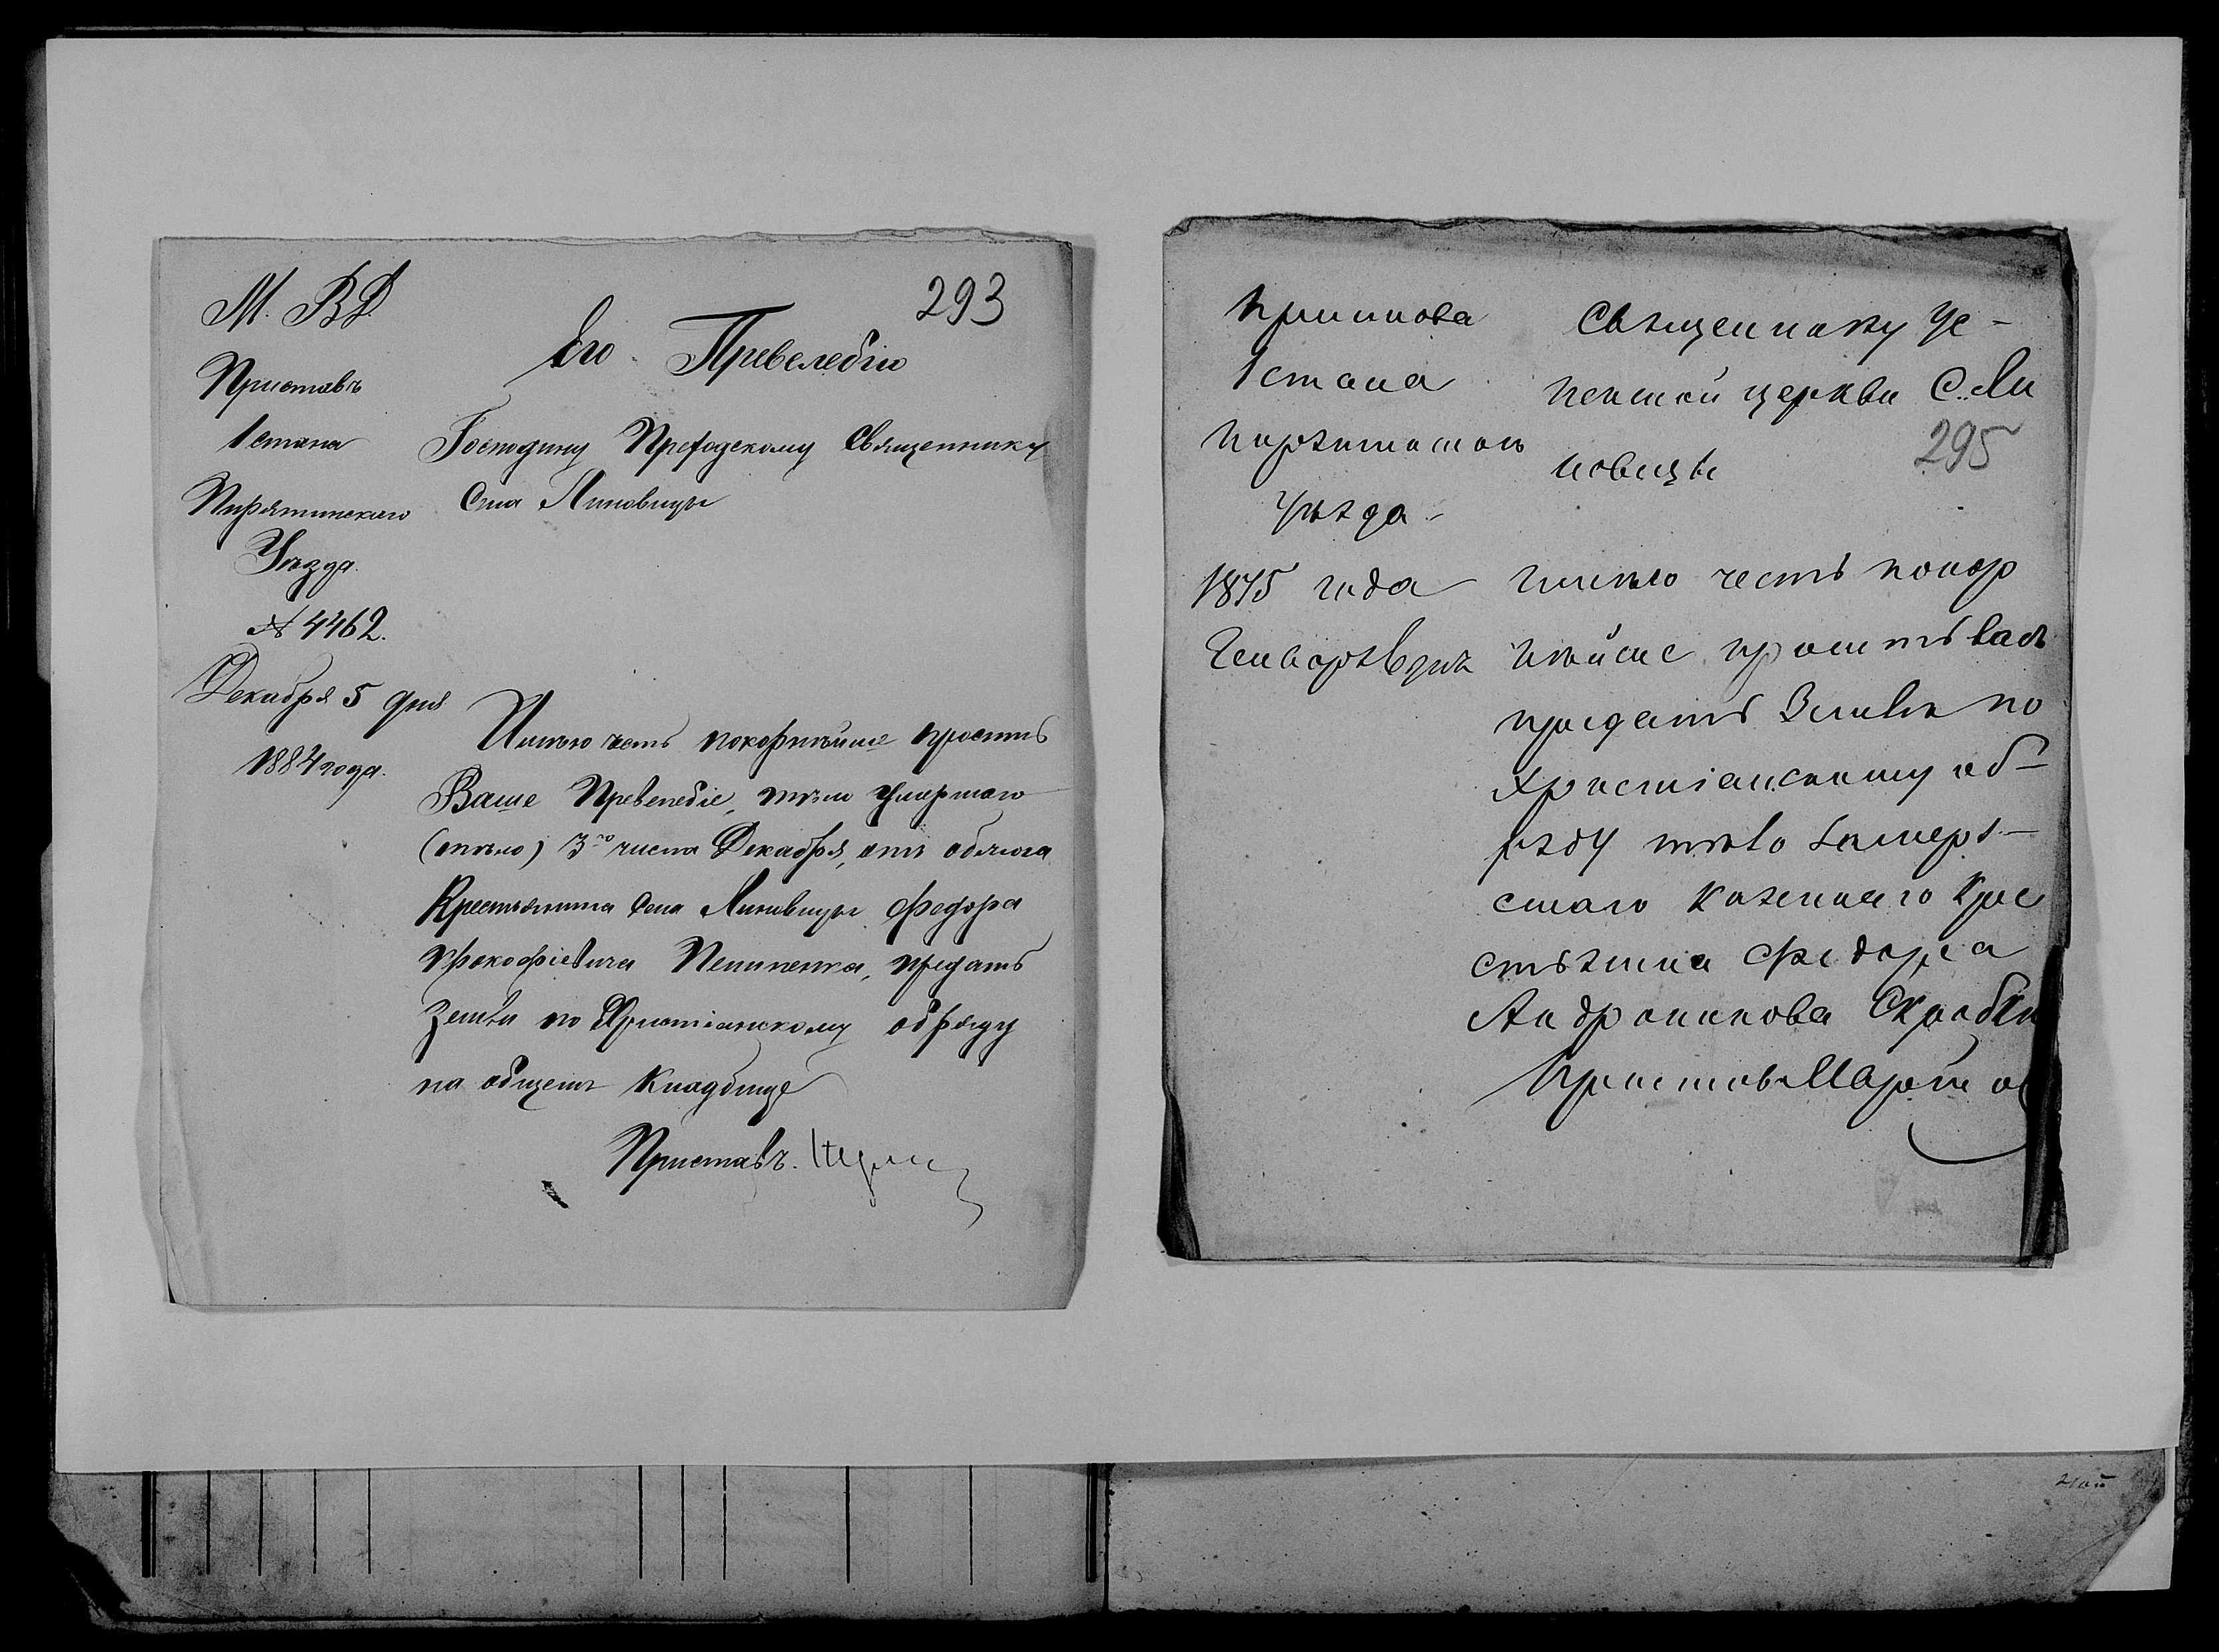 293
М. В. Д.
Приставъ
1 стана
Пирятинскаго
Уѣзда.
№ 4462.
Декабря 5 дня
1884 года.
Его Превелебію
Господину Приходскому Священнику
Села Линовицы
Имѣю честь покорнѣйше просить
Ваше Превелебіе, тѣло умершаго
(тѣло) 3го числа Декабря, отъ
Крестьянина села Линовицы Федора
Прокофіевича предать
Землѣ по Христіанскому обряду
на общемъ Кладбище
Приставъ.
Пристава
1 стана
Пирятинскаго
Уѣзда
1875 года
Генваря дня
Священнику Ус-
пенской церкви С. Ли
новицѣ
295
имѣю честь покор
нѣйше просить васъ
предать Землѣ по
Христіанскому об-
ряду тѣло замерз-
шаго Казеннаго Кре
стьянина Федора
Андроникова
Приставъ